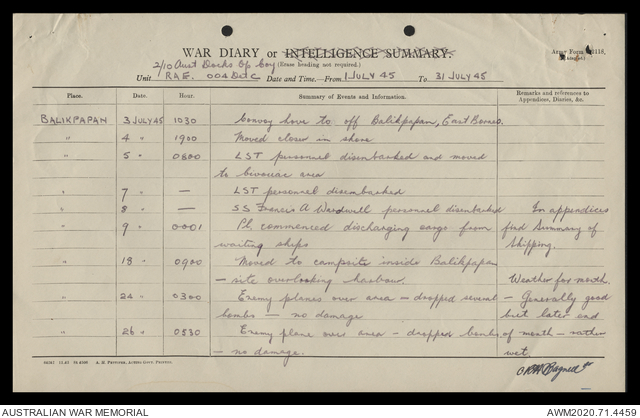 WAR DIARY or INTELLIGENCE SUMMARY.
Army Form
2/10 Aust Docks Op Coy (Erase heading not required.)
Unit RAE. Date and Time.—From 1 JULY 45 To 31 JULY 45
Place. Date. Hour. Summary of Events and Information. Remarks and references to Appendices, Diaries, &c.
BALIKPAPAN 3 JULY 45 1030 Convoy hove to off Balikpapan, East Borneo.
" 4 " 1900 Moved closer in shore
" 5 " 0800 LST personnel disembarked and moved
to bivouac area
" 7 " — LST personnel disembarked
" 8 " — SS Francis A Wardwell personnel disembarked
" 9 " 0001 Pl. commenced discharging cargo from
waiting ships
" 18 " 0900 Moved to campsite inside Balikpapan
— site overlooking harbour.
" 24 " 0300 Enemy planes over area — dropped several
bombs — no damage
" 26 " 0530 Enemy plane over area — dropped bombs
— no damage.
In appendices
find Summary of
Shipping.
Weather for month.
— Generally good
but later end
of month — rather
wet.
AUSTRALIAN WAR MEMORIAL
AWM2020.71.4459